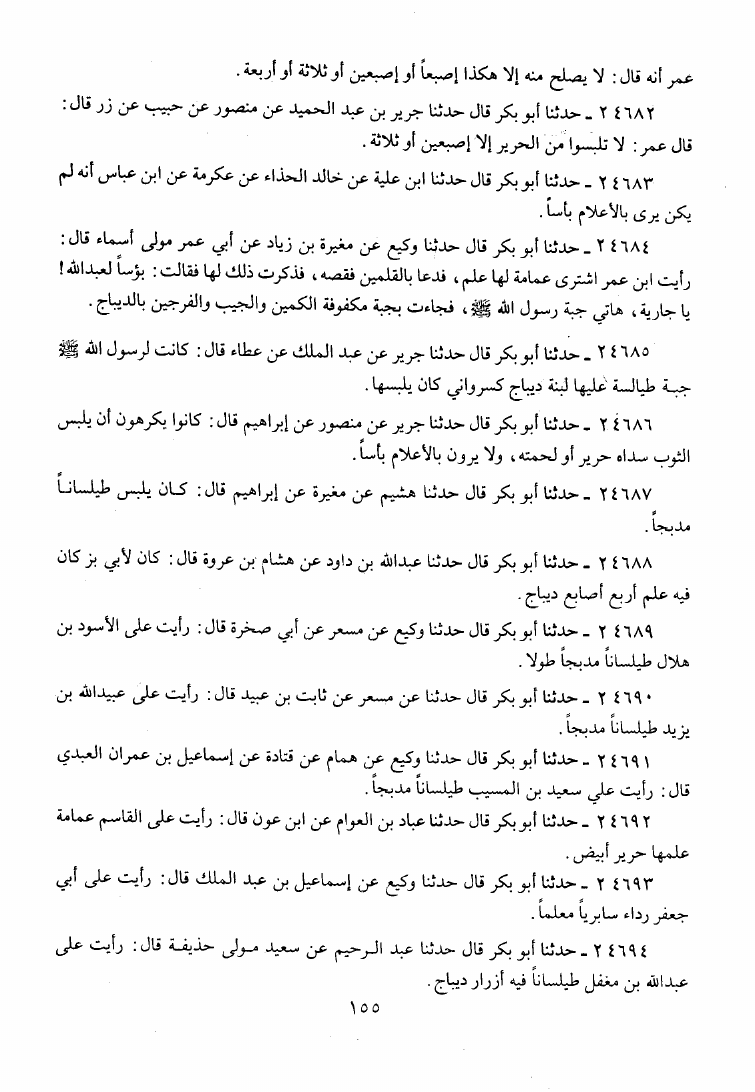 عمر أنه قال: لا يصلح منه إلا هكذا إصبعاً أو إصبعين أو ثلاثة أو أربعة.
٢٤٦٨٢ ـ حدثنا أبو بكر قال حدثنا جرير بن عبد الحميد عن منصور عن حبيب عن زر قال:
قال عمر: لا تلبسوا من الحرير إلا إصبعين أو ثلاثة.
٢٤٦٨٣ ـ حدثنا أبو بكر قال حدثنا ابن علية عن خالد الحذاء عن عكرمة عن ابن عباس أنه لم
يكن يرى بالأعلام بأساً.
٢٤٦٨٤ ـ حدثنا أبو بكر قال حدثنا وكيع عن مغيرة بن زياد عن أبي عمر مولى أسماء قال:
رأيت ابن عمر اشترى عمامة لها علم، فدعا بالقلمين فقصه، فذكرت ذلك لها فقالت: بؤساً لعبدالله!
يا جارية، هاتي جبة رسول الله ﷺ، فجاءت بجبة مكفوفة الكمين والجيب والفرجين بالديباج.
٢٤٦٨٥ ـ حدثنا أبو بكر قال حدثنا جرير عن عبد الملك عن عطاء قال: كانت لرسول الله ﷺ
جبة طيالسة عليها لبنة ديباج كسرواني كان يلبسها.
٢٤٦٨٦ ـ حدثنا أبو بكر قال حدثنا جرير عن منصور عن إبراهيم قال: كانوا يكرهون أن يلبس
الثوب سداه حرير أو لحمته، ولا يرون بالأعلام بأساً.
٢٤٦٨٧ ـ حدثنا أبو بكر قال حدثنا هشيم عن مغيرة عن إبراهيم قال: كان يلبس طيلساناً
مدبجاً.
٢٤٦٨٨ ـ حدثنا أبو بكر قال حدثنا عبدالله بن داود عن هشام بن عروة قال: كان لأبي بز كان
فيه علم أربع أصابع ديباج.
٢٤٦٨٩ ـ حدثنا أبو بكر قال حدثنا وكيع عن مسعر عن أبي صخرة قال: رأيت على الأسود بن
هلال طيلساناً مدبجاً طولا.
٢٤٦٩٠ ـ حدثنا أبو بكر قال حدثنا عن مسعر عن ثابت بن عبيد قال: رأيت على عبيدالله بن
يزيد طيلساناً مدبجاً.
٢٤٦٩١ ـ حدثنا أبو بكر قال حدثنا وكيع عن همام عن قتادة عن إسماعيل بن عمران العبدي
قال: رأيت علي سعيد بن المسيب طيلساناً مدبجاً.
٢٤٦٩٢ ـ حدثنا أبو بكر قال حدثنا عباد بن العوام عن ابن عون قال: رأيت على القاسم عمامة
علمها حرير أبيض.
٢٤٦٩٣ ـ حدثنا أبو بكر قال حدثنا وكيع عن إسماعيل بن عبد الملك قال: رأيت على أبي
جعفر رداء سابرياً معلماً.
٢٤٦٩٤ ـ حدثنا أبو بكر قال حدثنا عبد الرحيم عن سعيد مولى حذيفة قال: رأيت على
عبدالله بن مغفل طيلساناً فيه أزرار ديباج.
١٥٥